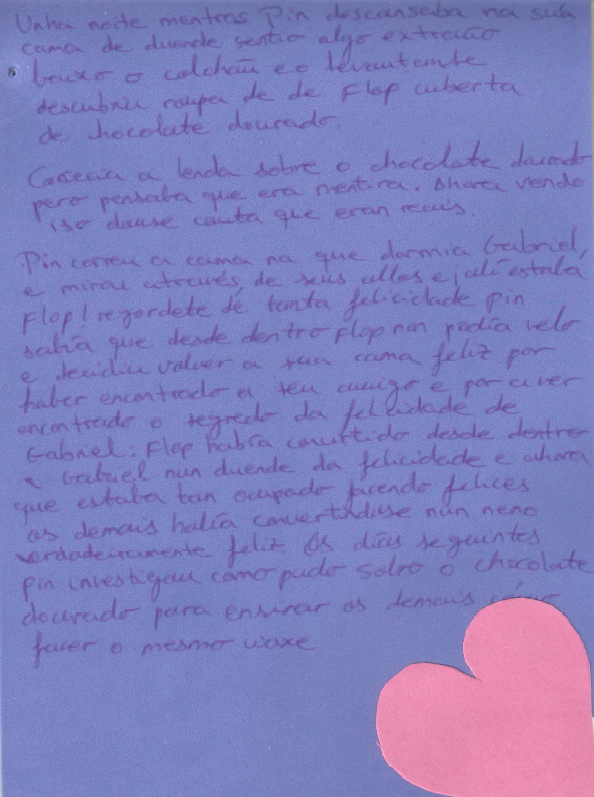 Unha noite mentras Pin descansaba na súa
cama de duende sentio algo extraño
baixo o colchón e o levantouse
descubriu roupa de de Flop cuberta
de chocolate dourado.
Coñecia a lenda sobre o chocolate dourado
pero pensaba que era mentira. Ahora vendo
iso dause conta que eran reais.
Pin correu a cama na que dormia Gabriel,
e mirou através de seus ollos e ¡alí estaba
Flop! regordete de tanta felicidade Pin
sabía que desde dentro Flop non podía velo
e decidiu volver a sua cama feliz por
haber encontrado a seu amigo e por aver
encontrado o segredo da felicidade de
Gabriel: Flop habia convertido desde dentro
a Gabriel nun duende da felicidade e ahora
que estaba tan ocupado facendo felices
os demais habia convertidose nun neno
verdadeiramente feliz. Os días seguintes
Pin investigou como pudo sobro o chocolate
dourado para ensinar os demais
facer o mesmo viaxe